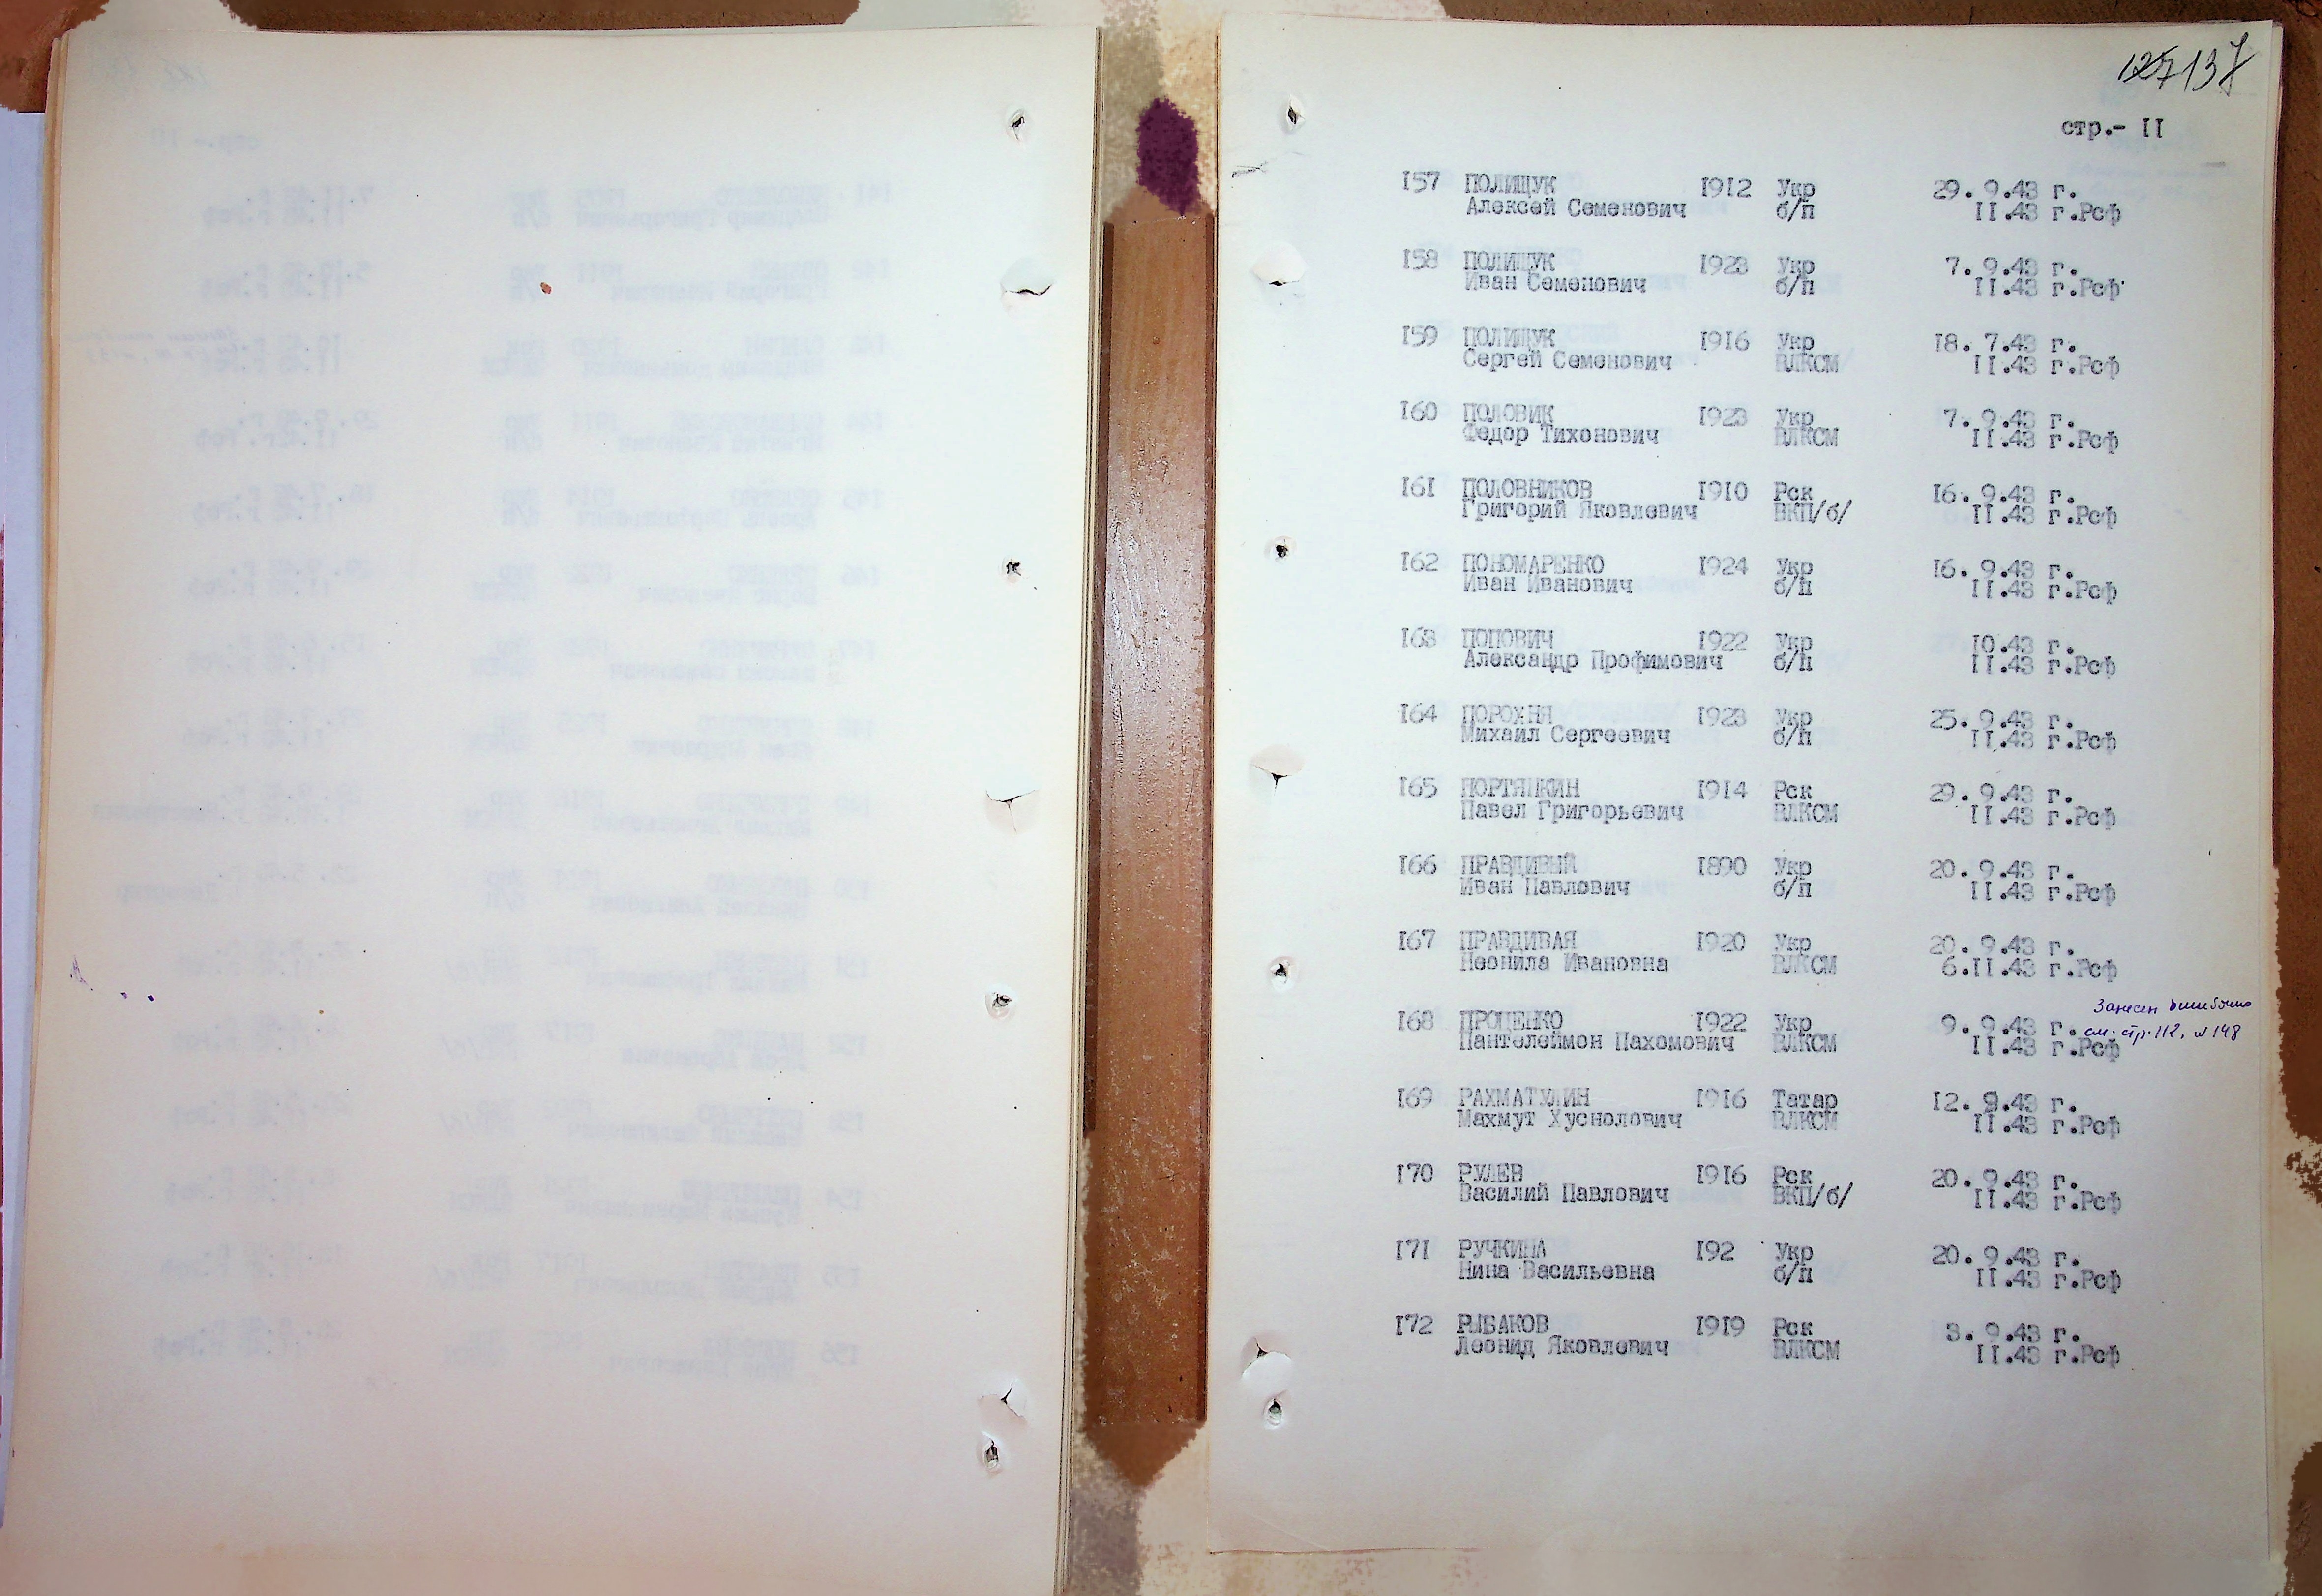 137
стр.- II
157 ПОЛИЩУК 1912 Укр 29. 9.43 г.
Алексей Семенович б/п II.43 г.Рсф
158 ПОЛИЩУК 1923 Укр 7. 9.43 г.
Иван Семенович б/п II.43 г.Рсф
159 ПОЛИЩУК 1916 Укр 18. 7.43 г.
Сергей Семенович ВЛКСМ II.43 г.Рсф
160 ПОЛОВИК 1923 Укр 7. 9.43 г.
Федор Тихонович ВЛКСМ II.43 г.Рсф
161 ПОЛОВНИКОВ 1910 Рск 16. 9.43 г.
Григорий Яковлевич ВКП/б/ II.43 г.Рсф
162 ПОНОМАРЕНКО 1924 Укр 16. 9.43 г.
Иван Иванович б/п II.43 г.Рсф
163 ПОПОВИЧ 1922 Укр 10.43 г.
Александр Профимович б/п II.43 г.Рсф
164 ПОРОХНЯ 1923 Укр 25. 9.43 г.
Михаил Сергеевич б/п II.43 г.Рсф
165 ПОРТЯНКИН 1914 Рск 29. 9.43 г.
Павел Григорьевич ВЛКСМ II.43 г.Рсф
166 ПРАВДИВЫЙ 1890 Укр 20. 9.43 г.
Иван Павлович б/п II.43 г.Рсф
167 ПРАВДИВАЯ 1920 Укр 20. 9.43 г.
Неонила Ивановна ВЛКСМ 6.II.43 г.Рсф
Занесен ошибочно
168 ПРОЦЕНКО 1922 Укр 9. 9.43 г. см. стр. 112, №148
Пантелеймон Пахомович ВЛКСМ II.43 г.Рсф
169 РАХМАТУЛИН 1916 Татар 12. 9.43 г.
Махмут Хуснолович ВЛКСМ II.43 г.Рсф
170 РУЛЕВ 1916 Рск 20. 9.43 г.
Василий Павлович ВКП/б/ II.43 г.Рсф
171 РУЧКИНА 192 Укр 20. 9.43 г.
Нина Васильевна б/п II.43 г.Рсф
172 РЫБАКОВ 1919 Рск 3. 9.43 г.
Леонид Яковлевич ВЛКСМ II.43 г.Рсф